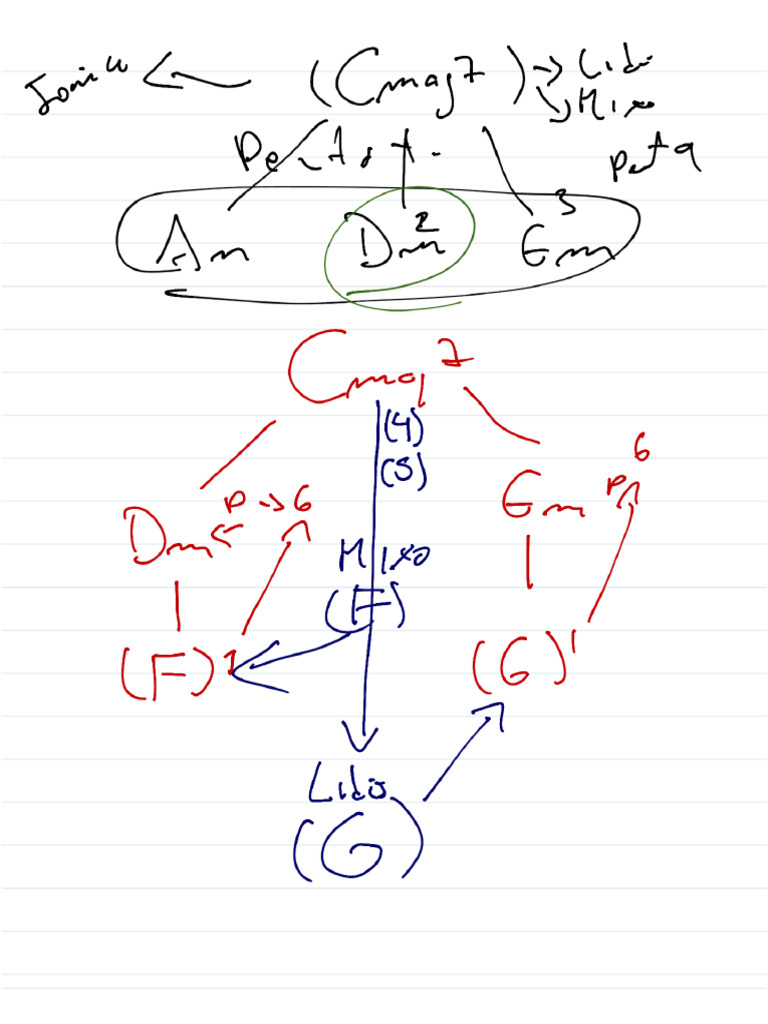 Jonico ← (Cmaj7) → Lidio
↘ Mixo
Pentat.
Penta
Am Dm2 Em3
Cmaj7
(4)
(5)
Dm P → 6 Em P 6
Mixo
(F)
(F)1 (G)1
Lidio
(G)